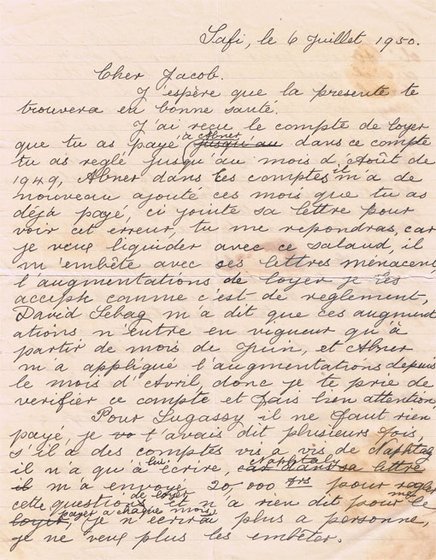 Safi, le 6 Juillet 1950.
Cher Jacob.
J'espère que la presente te
trouvera en bonne santé.
J'ai reçu le compte de loyer
que tu as payé à Abner jusqu'au dans ce compte
tu as reglé jusqu'au mois d'Août de
1949, Abner dans les comptes il m'a de
nouveau ajouté ces mois que tu as
déjà payé, ci jointe sa lettre pour
voir cet erreur, tu me repondras, car
je veux liquider avec ce salaud, il
m'embête avec ses lettres menacent,
l'augmentations de loyer je les
accepte comme c'est de reglement,
David Sebag m'a dit que ces augment
ations n'entre en vigueur qu'à
partir de mois de Juin, et Abner
m'a appliqué l'augmentations depuis
le mois d'Avril, donc je te prie de
verifier ce compte et fais bien attention
Pour Lugassy il ne faut rien
payé, je vo t'avais dit plusieurs fois,
s'il a des comptes vis a vis de Naphtaly
il n'a qu'à lui écrire, car dans sa lettre
il m'a envoyé 20,000 frs pour regler
cette question de loyer il n'a rien dit pour le
loyer, payer a chaque mois, je n'ecrirai plus a personne,
je ne veux plus les embêter.